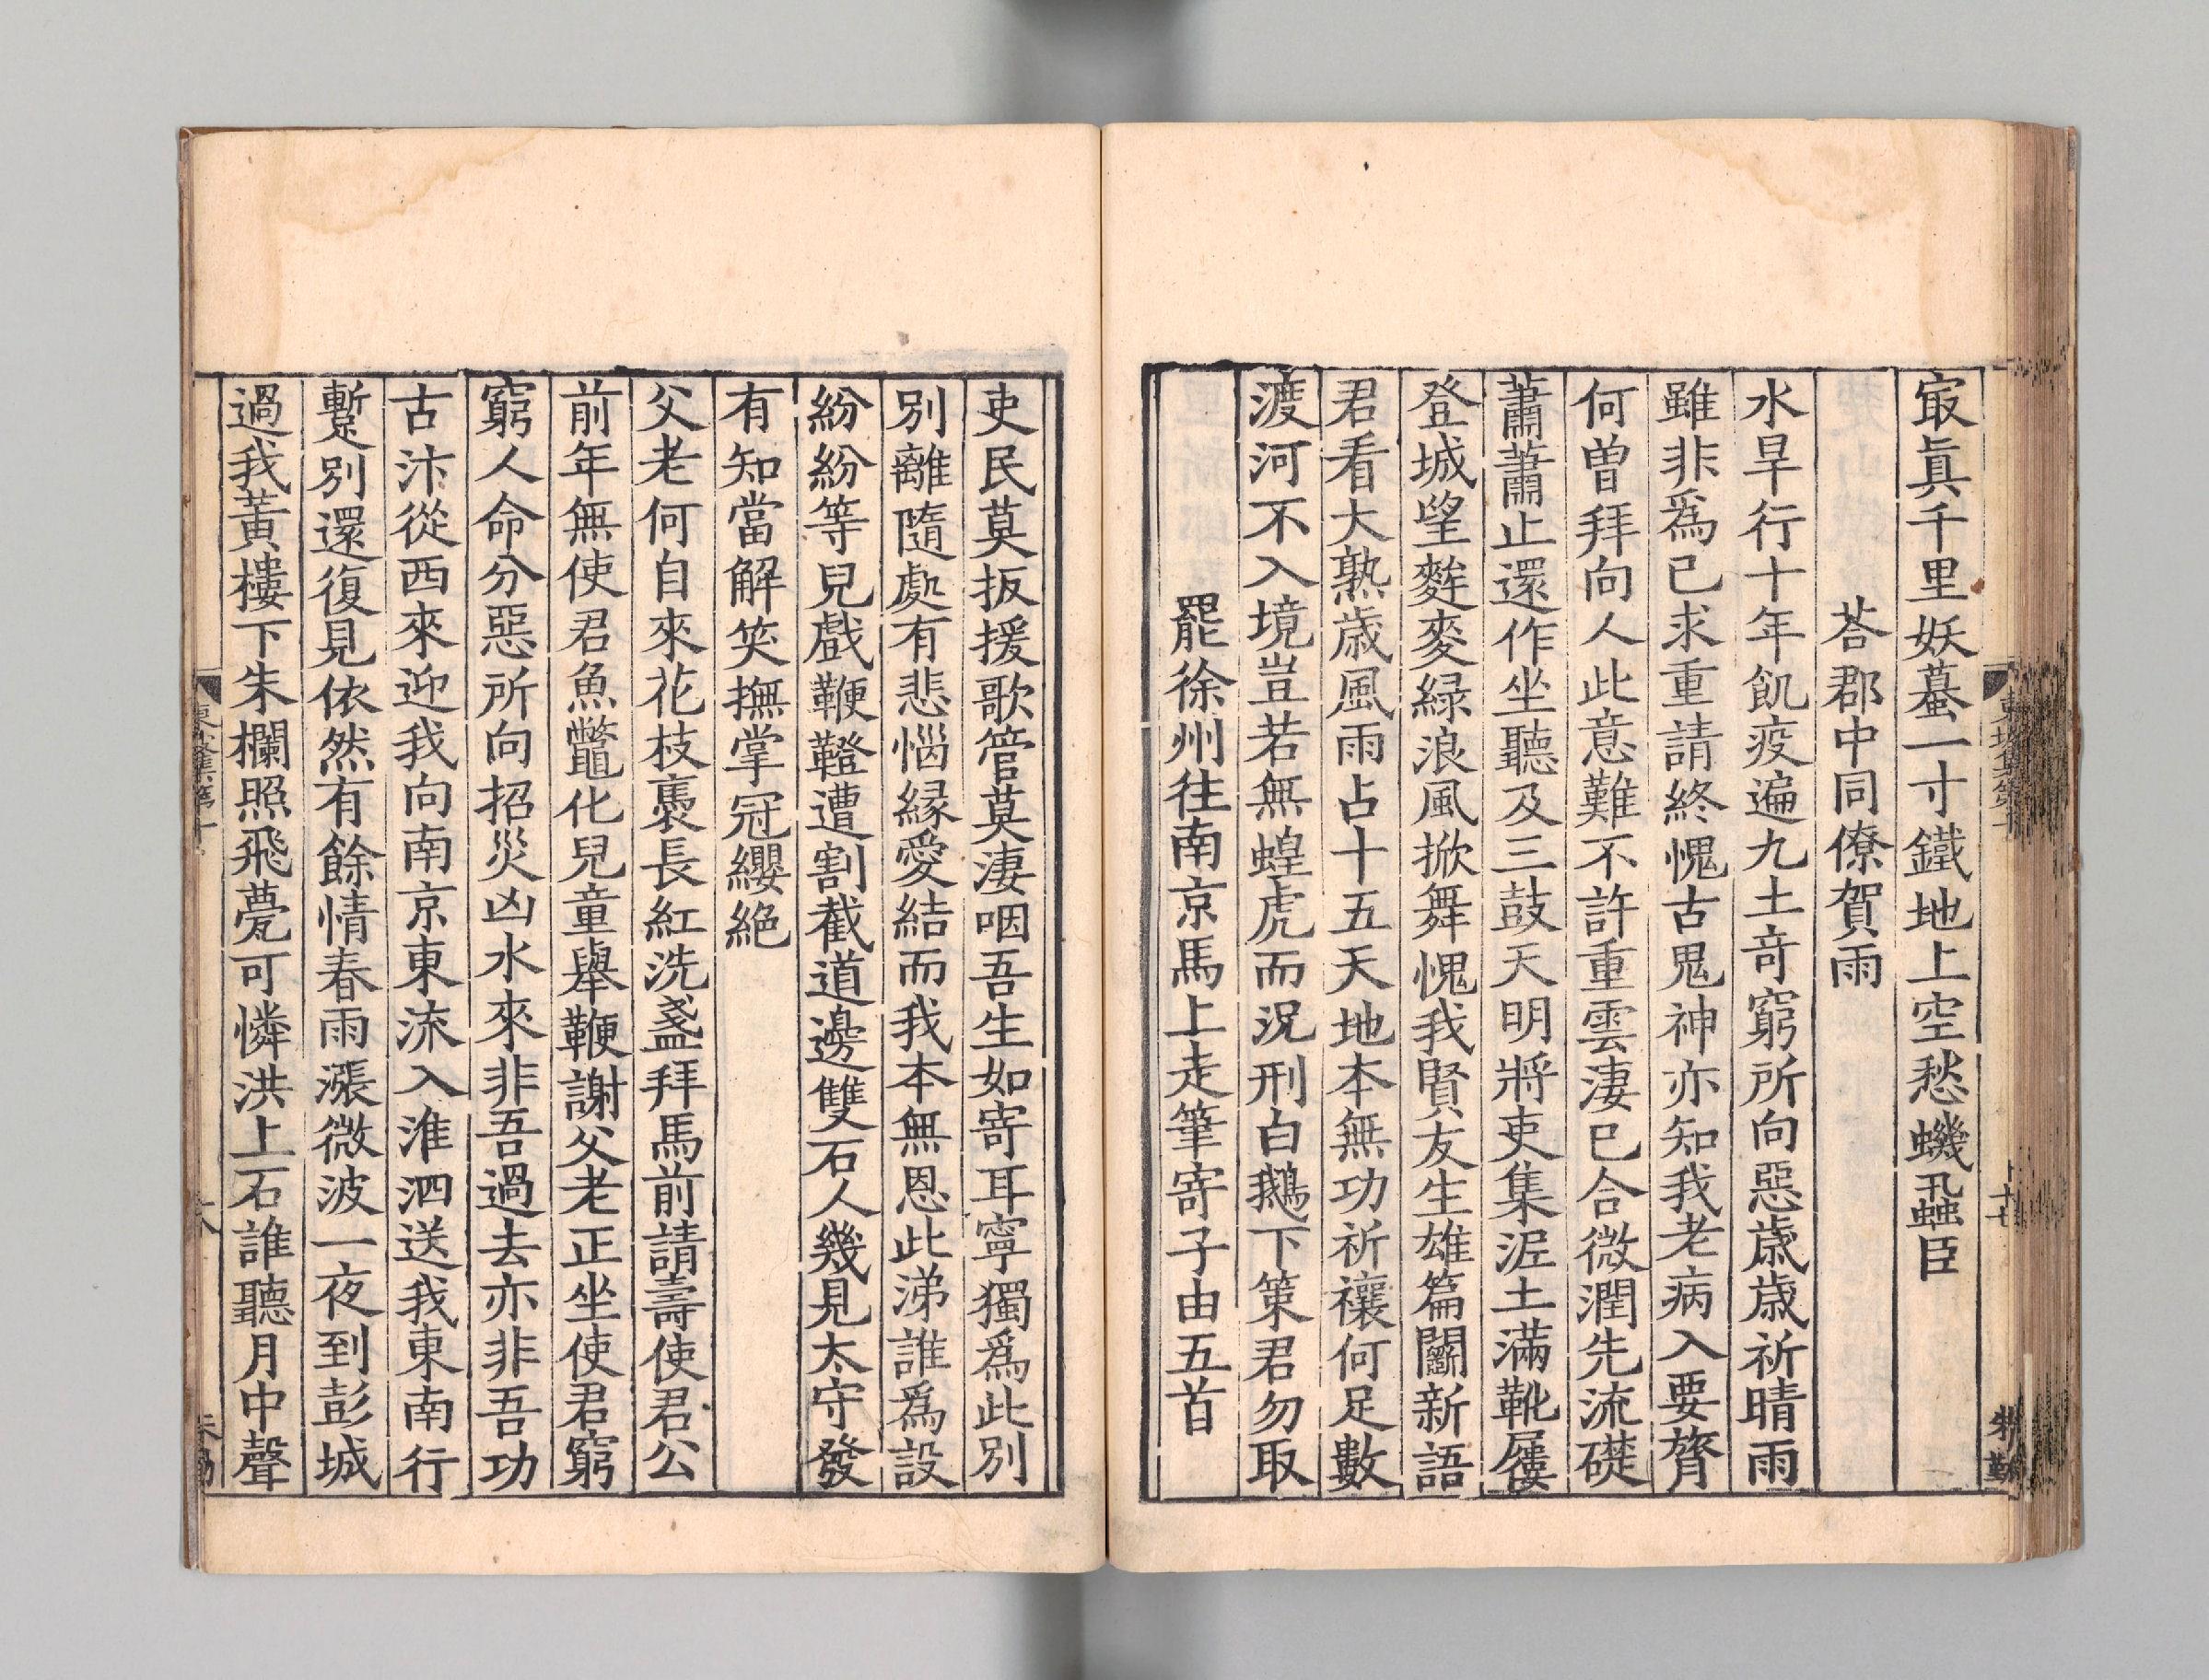 㝡眞千里妖蟇一寸鐵地上空愁蟣蝨臣
荅郡中同僚賀雨
水旱行十年飢疫遍九土竒窮所向惡歳歳祈晴雨
雖非爲已求重請終愧古鬼神亦知我老病入要膂
何曽拜向人此意難不許重雲淒已合微潤先流礎
蕭蕭止還作坐聽及三鼓天明將吏集泥土滿靴屨
登城望麰麥緑浪風掀舞愧我賢友生雄篇鬭新語
君看大熟歳風雨占十五天地本無功祈禳何足數
渡河不入境豈若無蝗虎而況刑白鵝下策君勿取
罷徐州往南京馬上走筆寄子由五首
吏民莫扳援歌管莫淒咽吾生如寄耳寧獨爲此別
別離隨處有悲惱縁愛結而我本無恩此涕誰爲設
紛紛等兒戲鞭鐙遭割截道邊雙石人幾見太守發
有知當解笑撫掌冠纓絶
父老何自來花枝褭長紅洗盞拜馬前請壽使君公
前年無使君魚鼈化兒童舉鞭謝父老正坐使君窮
窮人命分惡所向招災凶水來非吾過去亦非吾功
古汴從西來迎我向南京東流入淮泗送我東南行
蹔別還復見依然有餘情春雨漲微波一夜到彭城
過我黃樓下朱欄照飛甍可憐洪上石誰聽月中聲